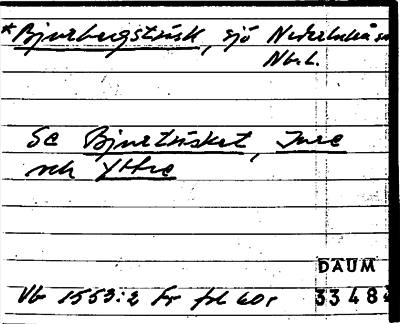 *Bjurbergsträsk, sjö Nederluleå sn
Nbt.
Se Bjurträsket, Inre
och Yttre
DAUM
Vb 1553:2 Fr fol 60r 33484